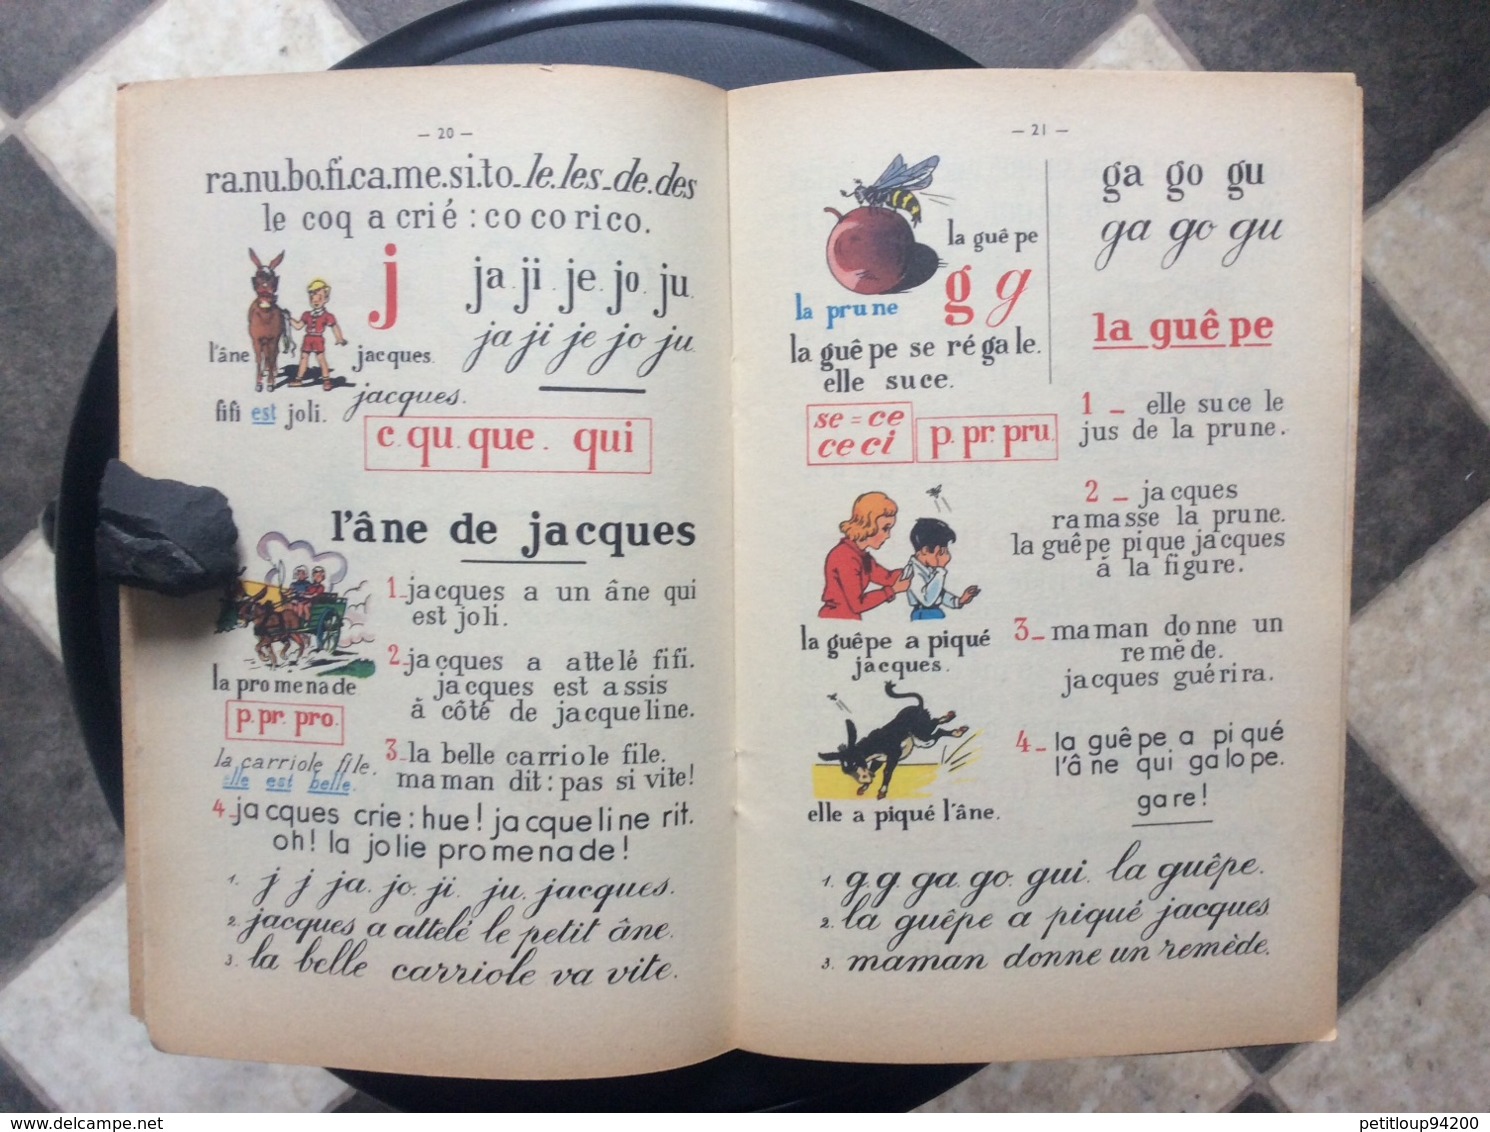 — 20 —
ra.nu.bo.fi.ca.me.si.to_le.les_de.des
le coq a crié : co co rico.
j
ja.ji.je.jo.ju.
ja ji je jo ju.
l'âne
jacques.
jacques.
fifi est joli.
c.qu.que. qui
l'âne de jacques
1_jacques a un âne qui
est joli.
2_jacques a attelé fifi.
jacques est assis
à côté de jacqueline.
la promenade
p.pr.pro.
la carriole file.
elle est belle.
3_la belle carriole file.
maman dit : pas si vite !
4_jacques crie : hue ! jacqueline rit.
oh ! la jolie promenade !
1. j j ja. jo. ji. ju. jacques.
2. jacques a attelé le petit âne.
3. la belle carriole va vite.
— 21 —
la guêpe
la prune
g g
la guêpe se régale.
elle suce.
ga go gu
ga go gu
la guêpe
se = ce
ce ci
p.pr.pru.
1 _ elle suce le
jus de la prune.
2 _ jacques
ramasse la prune.
la guêpe pique jacques
à la figure.
la guêpe a piqué
jacques.
3_maman donne un
remède.
jacques guérira.
elle a piqué l'âne.
4_la guêpe a piqué
l'âne qui galope.
gare !
1. g.g. ga. go. gui. la guêpe.
2. la guêpe a piqué jacques.
3. maman donne un remède.
petitloup94200